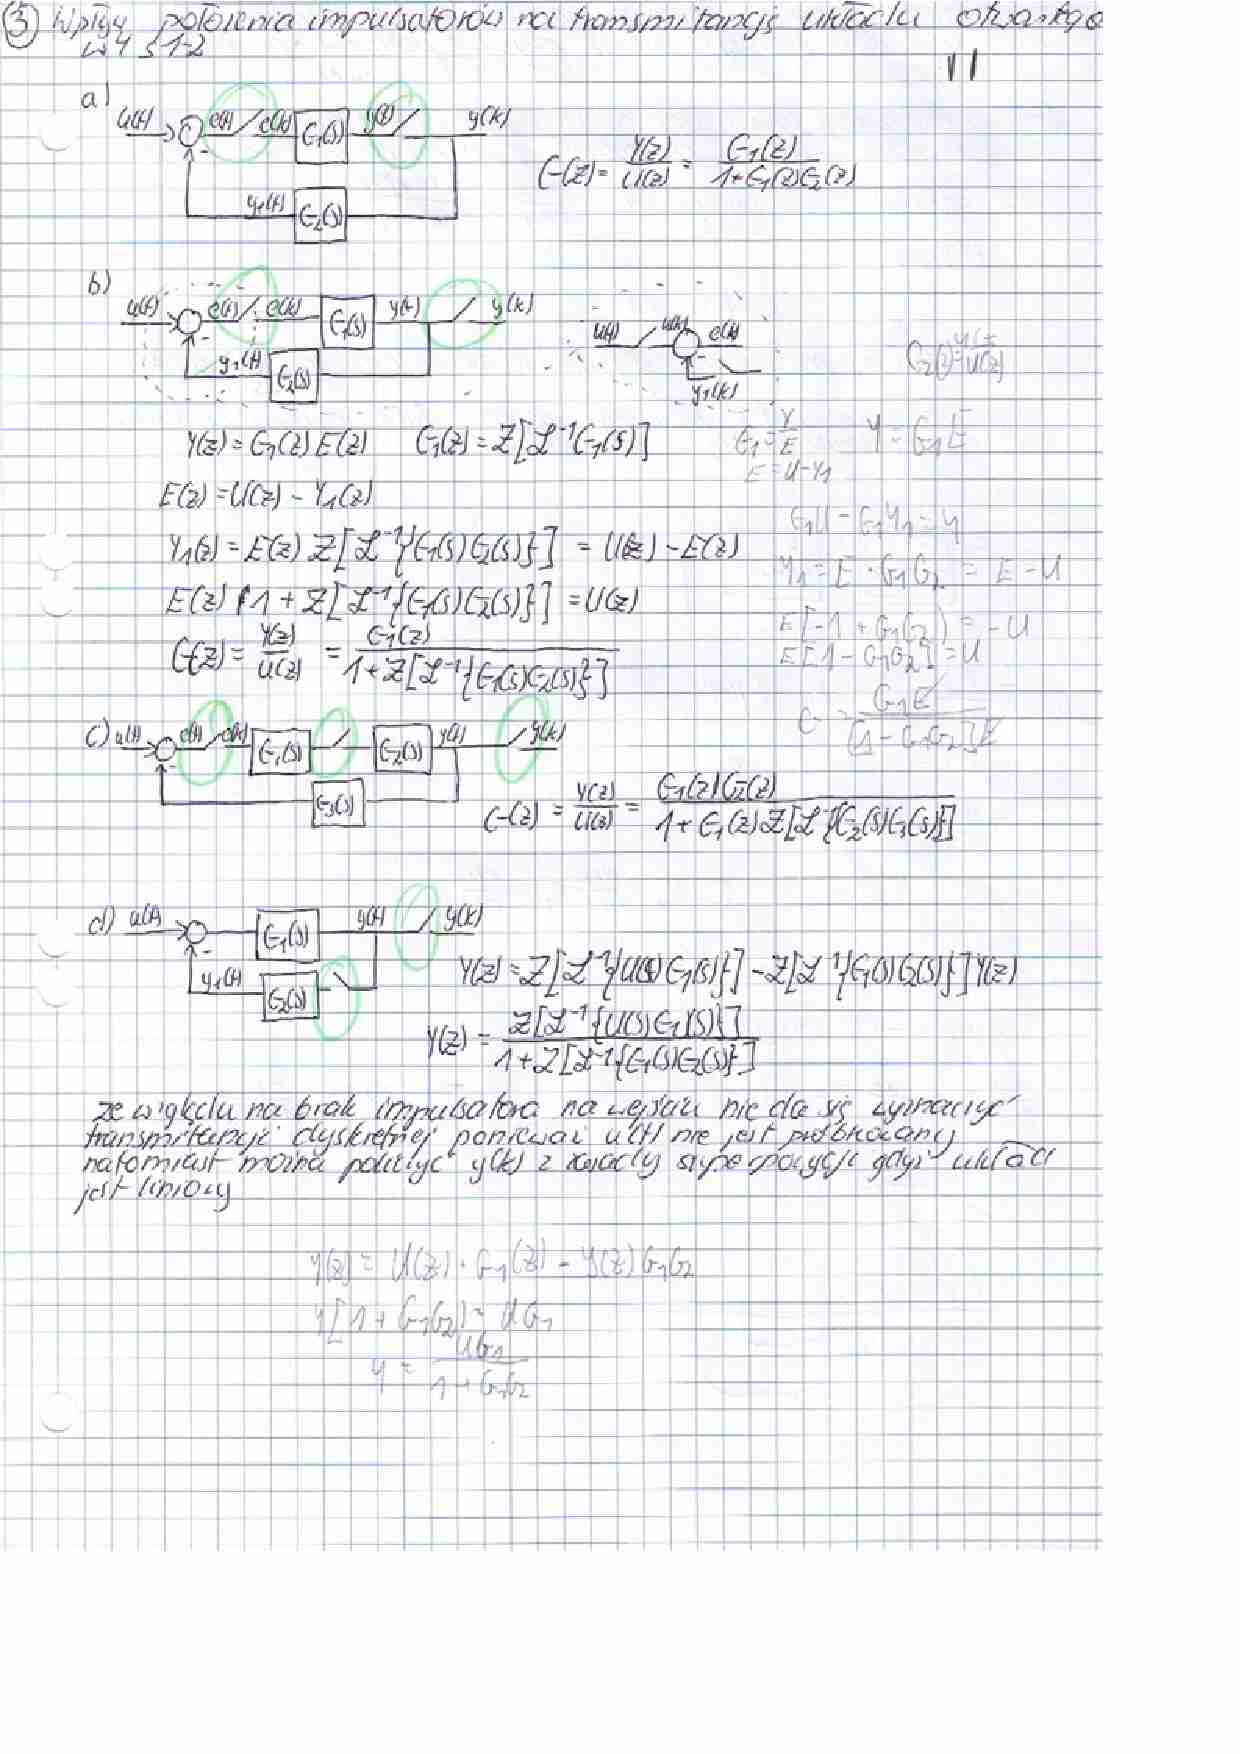 ③ Wpływ położenia impulsatorów na transmitancję układu otwartego
w4 s 1-2
11
a)
u(t) e(t) e(k) G₁(s) y(t) y(k)
-
y₁(t) G₂(s)
G(z) = Y(z)/U(z) = G₁(z)/(1+G₁(z)G₂(z))
b)
u(t) e(t) e(k) G₁(s) y(t) y(k)
-
y₁(t) G₂(s)
u(t) u(k) e(k)
-
y₁(k)
Y(z) = G₁(z) E(z) G₁(z) = Z[ℒ⁻¹G₁(s)]
G₁ = Y/E Y = G₁E
E = U - Y₁
E(z) = U(z) - Y₁(z)
G₁U - G₁Y₁ = Y
Y₁(z) = E(z) Z[ℒ⁻¹{G₁(s)G₂(s)}] = U(z) - E(z)
Y₁ = E · G₁G₂ = E - U
E(z)[1 + Z[ℒ⁻¹{G₁(s)G₂(s)}] = U(z)
E[-1 + G₁G₂] = -U
E[1 - G₁G₂] = U
G(z) = Y(z)/U(z) = G₁(z)/(1 + Z[ℒ⁻¹{G₁(s)G₂(s)}])
G = G₁E/([1 - G₁G₂]E)
c) u(t) e(t) e(k) G₁(s) G₂(s) y(t) y(k)
-
G₃(s)
G(z) = Y(z)/U(z) = G₁(z)G₂(z)/(1 + G₁(z)Z[ℒ⁻¹{G₂(s)G₃(s)}])
d) u(t) G₁(s) y(t) y(k)
-
y₁(t) G₂(s)
Y(z) = Z[ℒ⁻¹{U(s)G₁(s)}] - Z[ℒ⁻¹{G₁(s)G₂(s)}]Y(z)
Y(z) = Z[ℒ⁻¹{U(s)G₁(s)}]/(1 + Z[ℒ⁻¹{G₁(s)G₂(s)}])
ze względu na brak impulsatora na wejściu nie da się wyznaczyć
transmitancji dyskretnej ponieważ u(t) nie jest próbkowany
natomiast można policzyć y(k) z zasady superpozycji gdyż układ
jest liniowy
Y(z) = U(z) · G₁(z) - Y(z) G₁G₂
Y[1 + G₁G₂] = UG₁
Y = UG₁/(1 + G₁G₂)